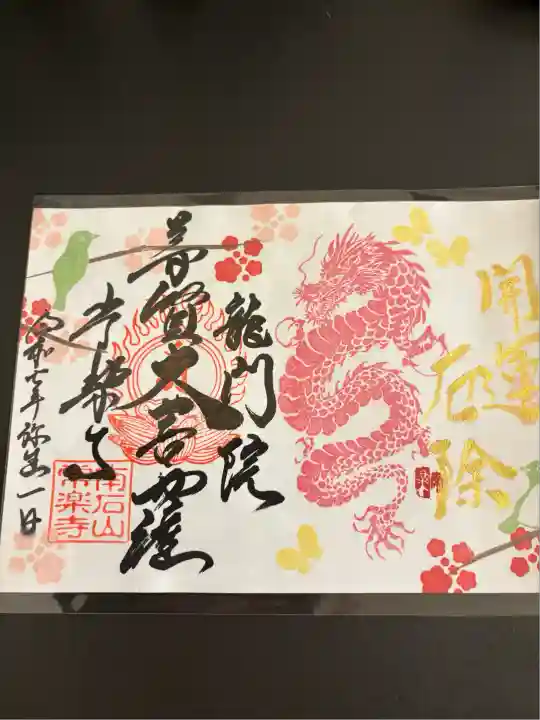 開運
厄除
龍門院
普賢大菩薩
常楽寺
令和七年弥生一日
南石山
常楽寺